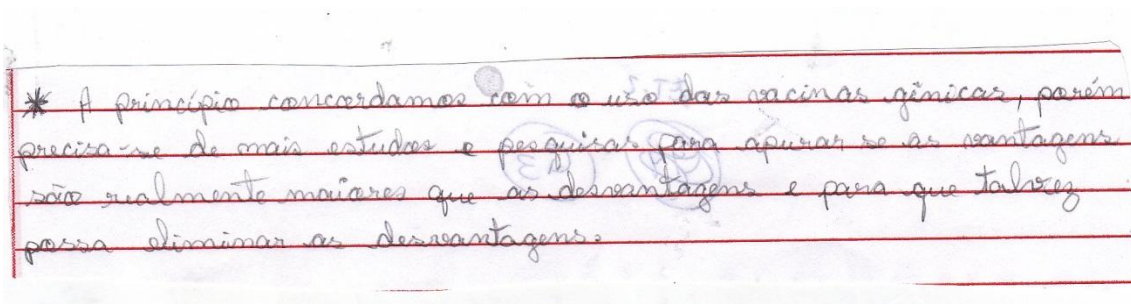 * A princípio concordamos com o uso das vacinas gênicas, porém
precisa-se de mais estudos e pesquisas para apurar se as vantagens
são realmente maiores que as desvantagens e para que talvez
possa eliminar as desvantagens.